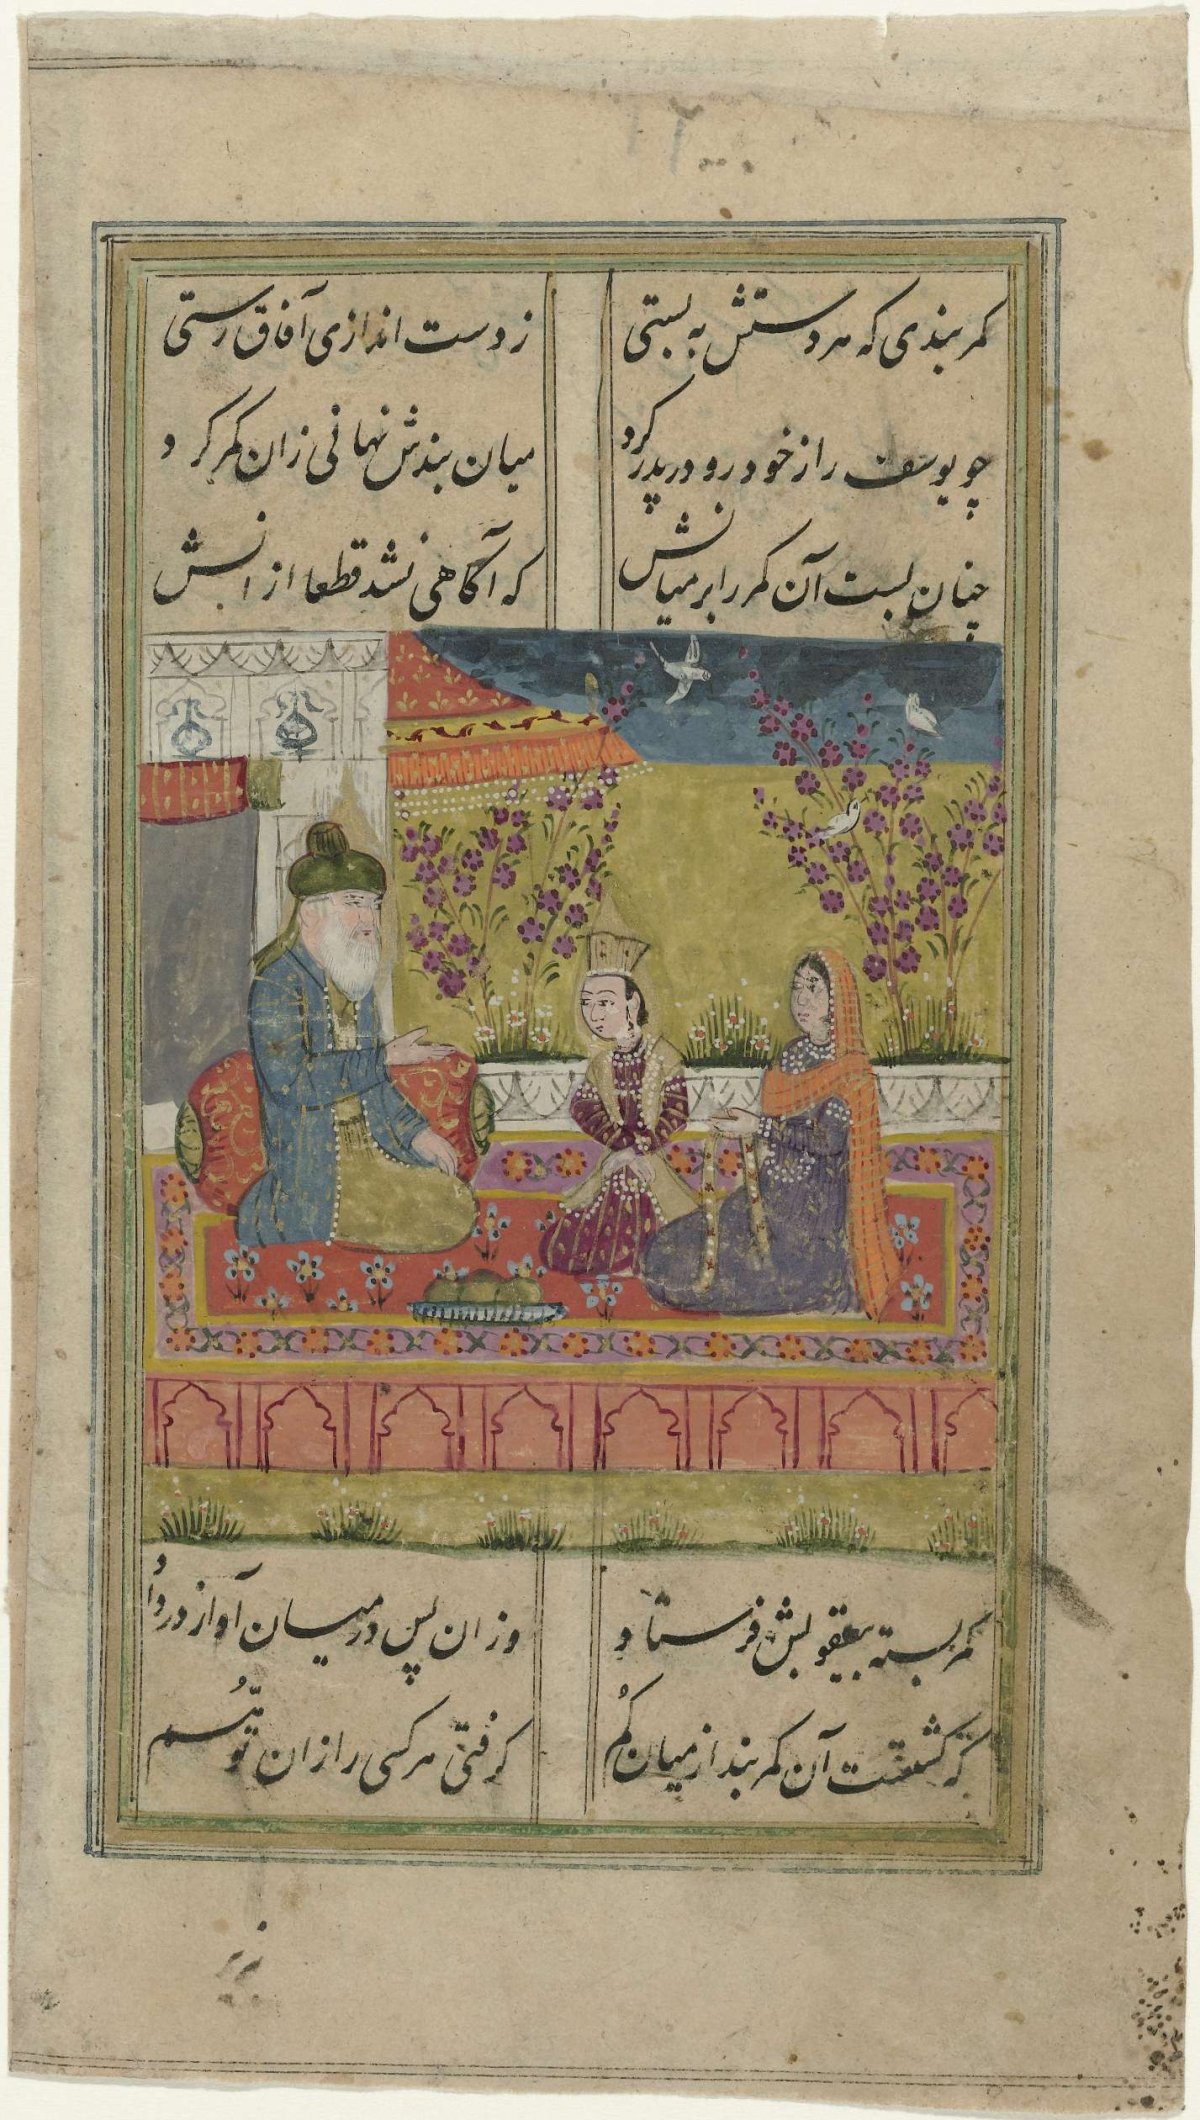 کمربندی که هر دستش به بستی
ز دست اندازی آفاق رستی
چو یوسف را ز خود رو در پدر کرد
میان بندش نهانی زان کمر کرد
چنان بست آن کمر را بر میانش
که آگاهی نشد قطعا از انش
کمر بسته بیعقوبش فرستاد
وزان پس در میان آواز در داد
که گشتست آن کمربند از میان گم
گرفتی هر کسی را زان توهم